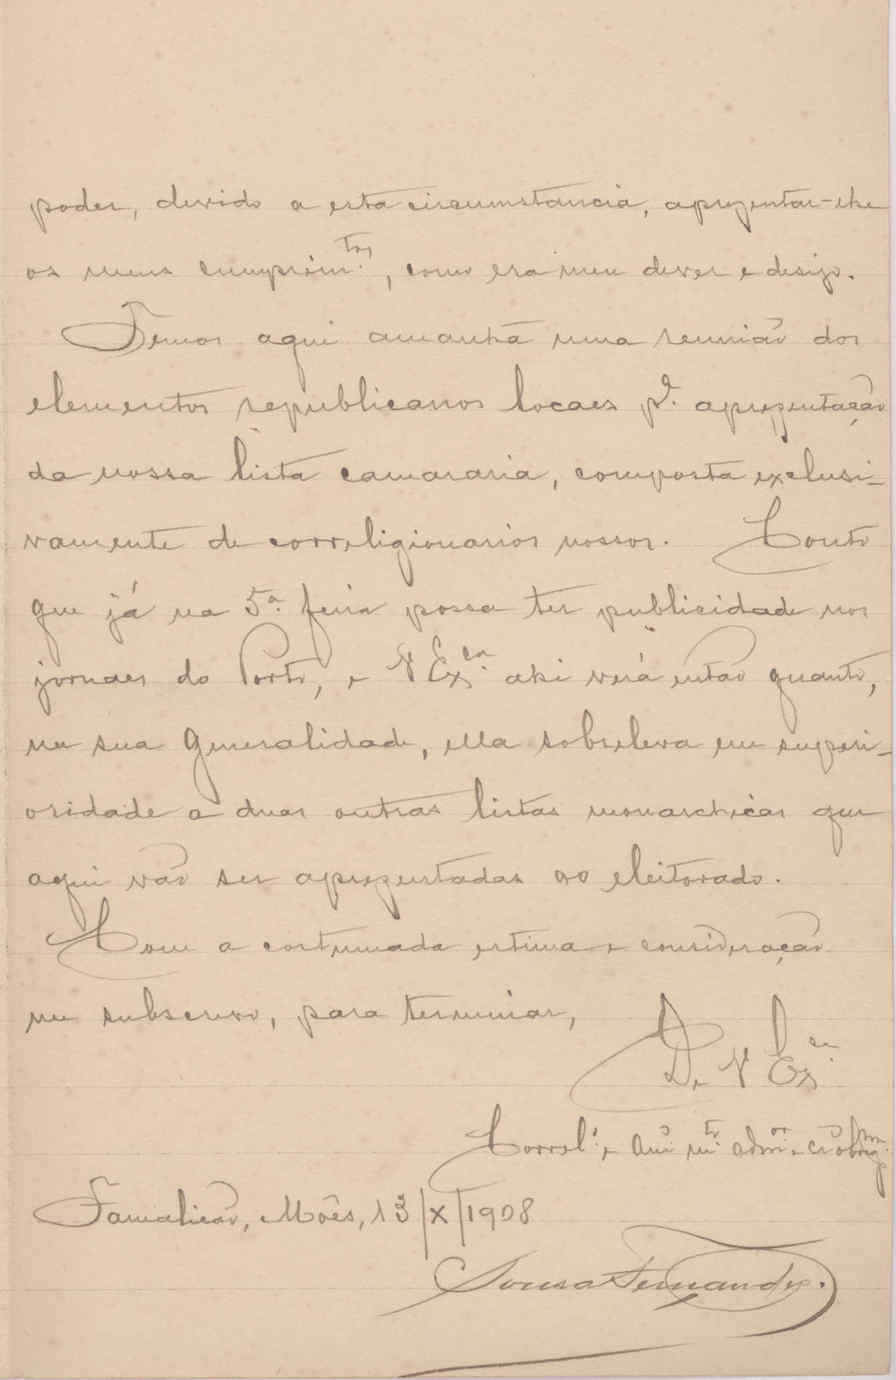 poder, devido a esta circumstancia, aprezentar-lhe
os meus cumprim.tos, como era meu dever e desejo.
Temos aqui amanhã uma reunião dos
elementos republicanos locaes p.ª aprezentação
da nossa lista camararia, composta exclusi-
vamente de correligionarios nossos. Conto
que já na 5.ª feira possa ter publicidade nos
jornaes do Porto, e V Ex.cia ahi verá então quanto,
na sua generalidade, ella sobreleva em superi-
oridade a duas outras listas monarchicas que
aqui vão ser aprezentadas ao eleitorado.
Com a costumada estima e consideração
me subscrevo, para terminar,
De V Ex.cia
Correl.º e am.º m.to adm.or e cr.º obrig.mo
Famalicão, Mões, 13/X/1908
Sousa Fernandes.